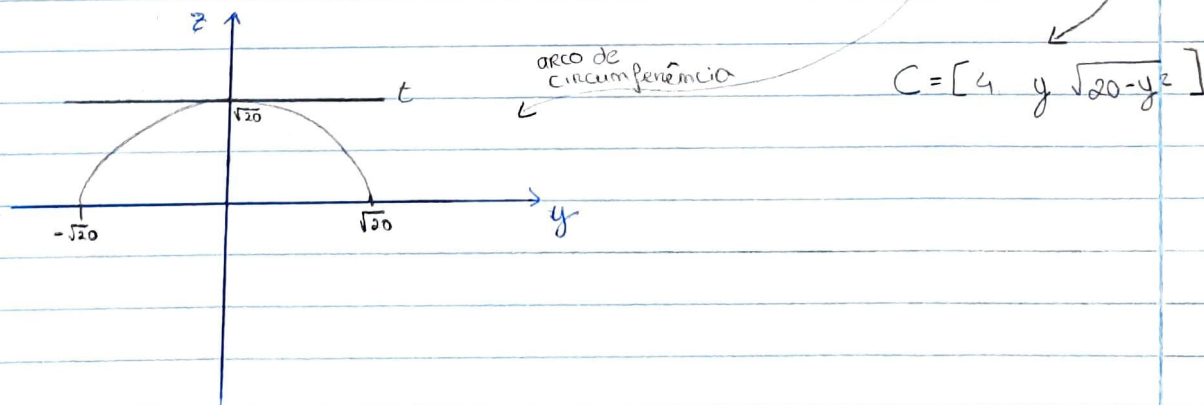 z
arco de
circunferência
C = [4 y √20-y²]
t
√20
y
-√20
√20